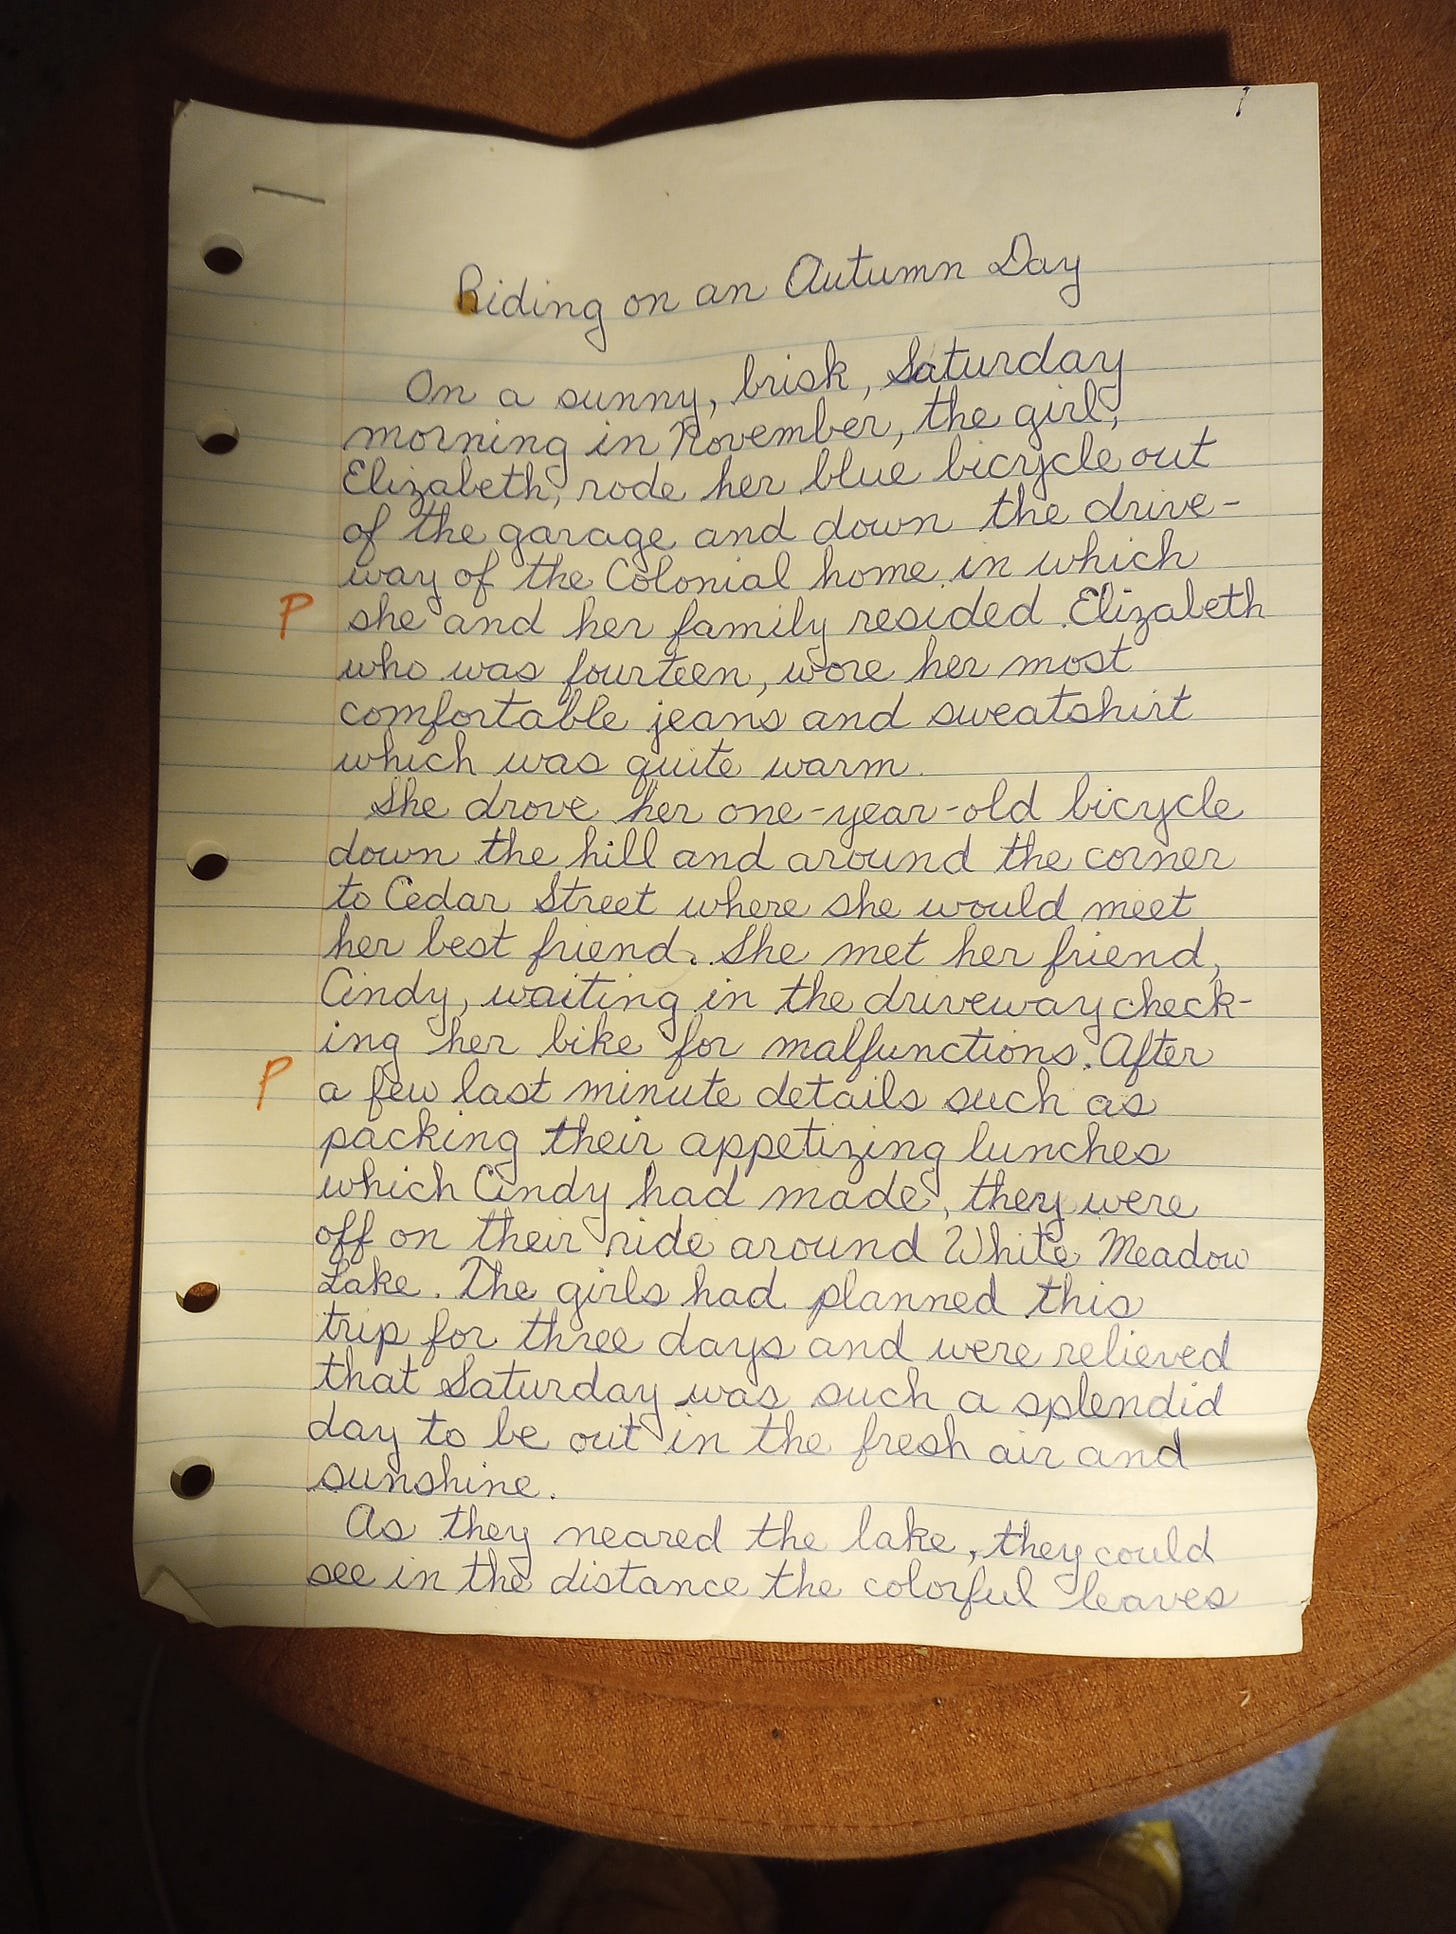 1
Riding on an Autumn Day
On a sunny, brisk, Saturday
morning in November, the girl,
Elizabeth, rode her blue bicycle out
of the garage and down the drive-
way of the Colonial home in which
P she and her family resided. Elizabeth
who was fourteen, wore her most
comfortable jeans and sweatshirt
which was quite warm.
She drove her one-year-old bicycle
down the hill and around the corner
to Cedar Street where she would meet
her best friend. She met her friend,
Cindy, waiting in the driveway check-
ing her bike for malfunctions. After
P a few last minute details such as
packing their appetizing lunches
which Cindy had made, they were
off on their ride around White Meadow
Lake. The girls had planned this
trip for three days and were relieved
that Saturday was such a splendid
day to be out in the fresh air and
sunshine.
As they neared the lake, they could
see in the distance the colorful leaves